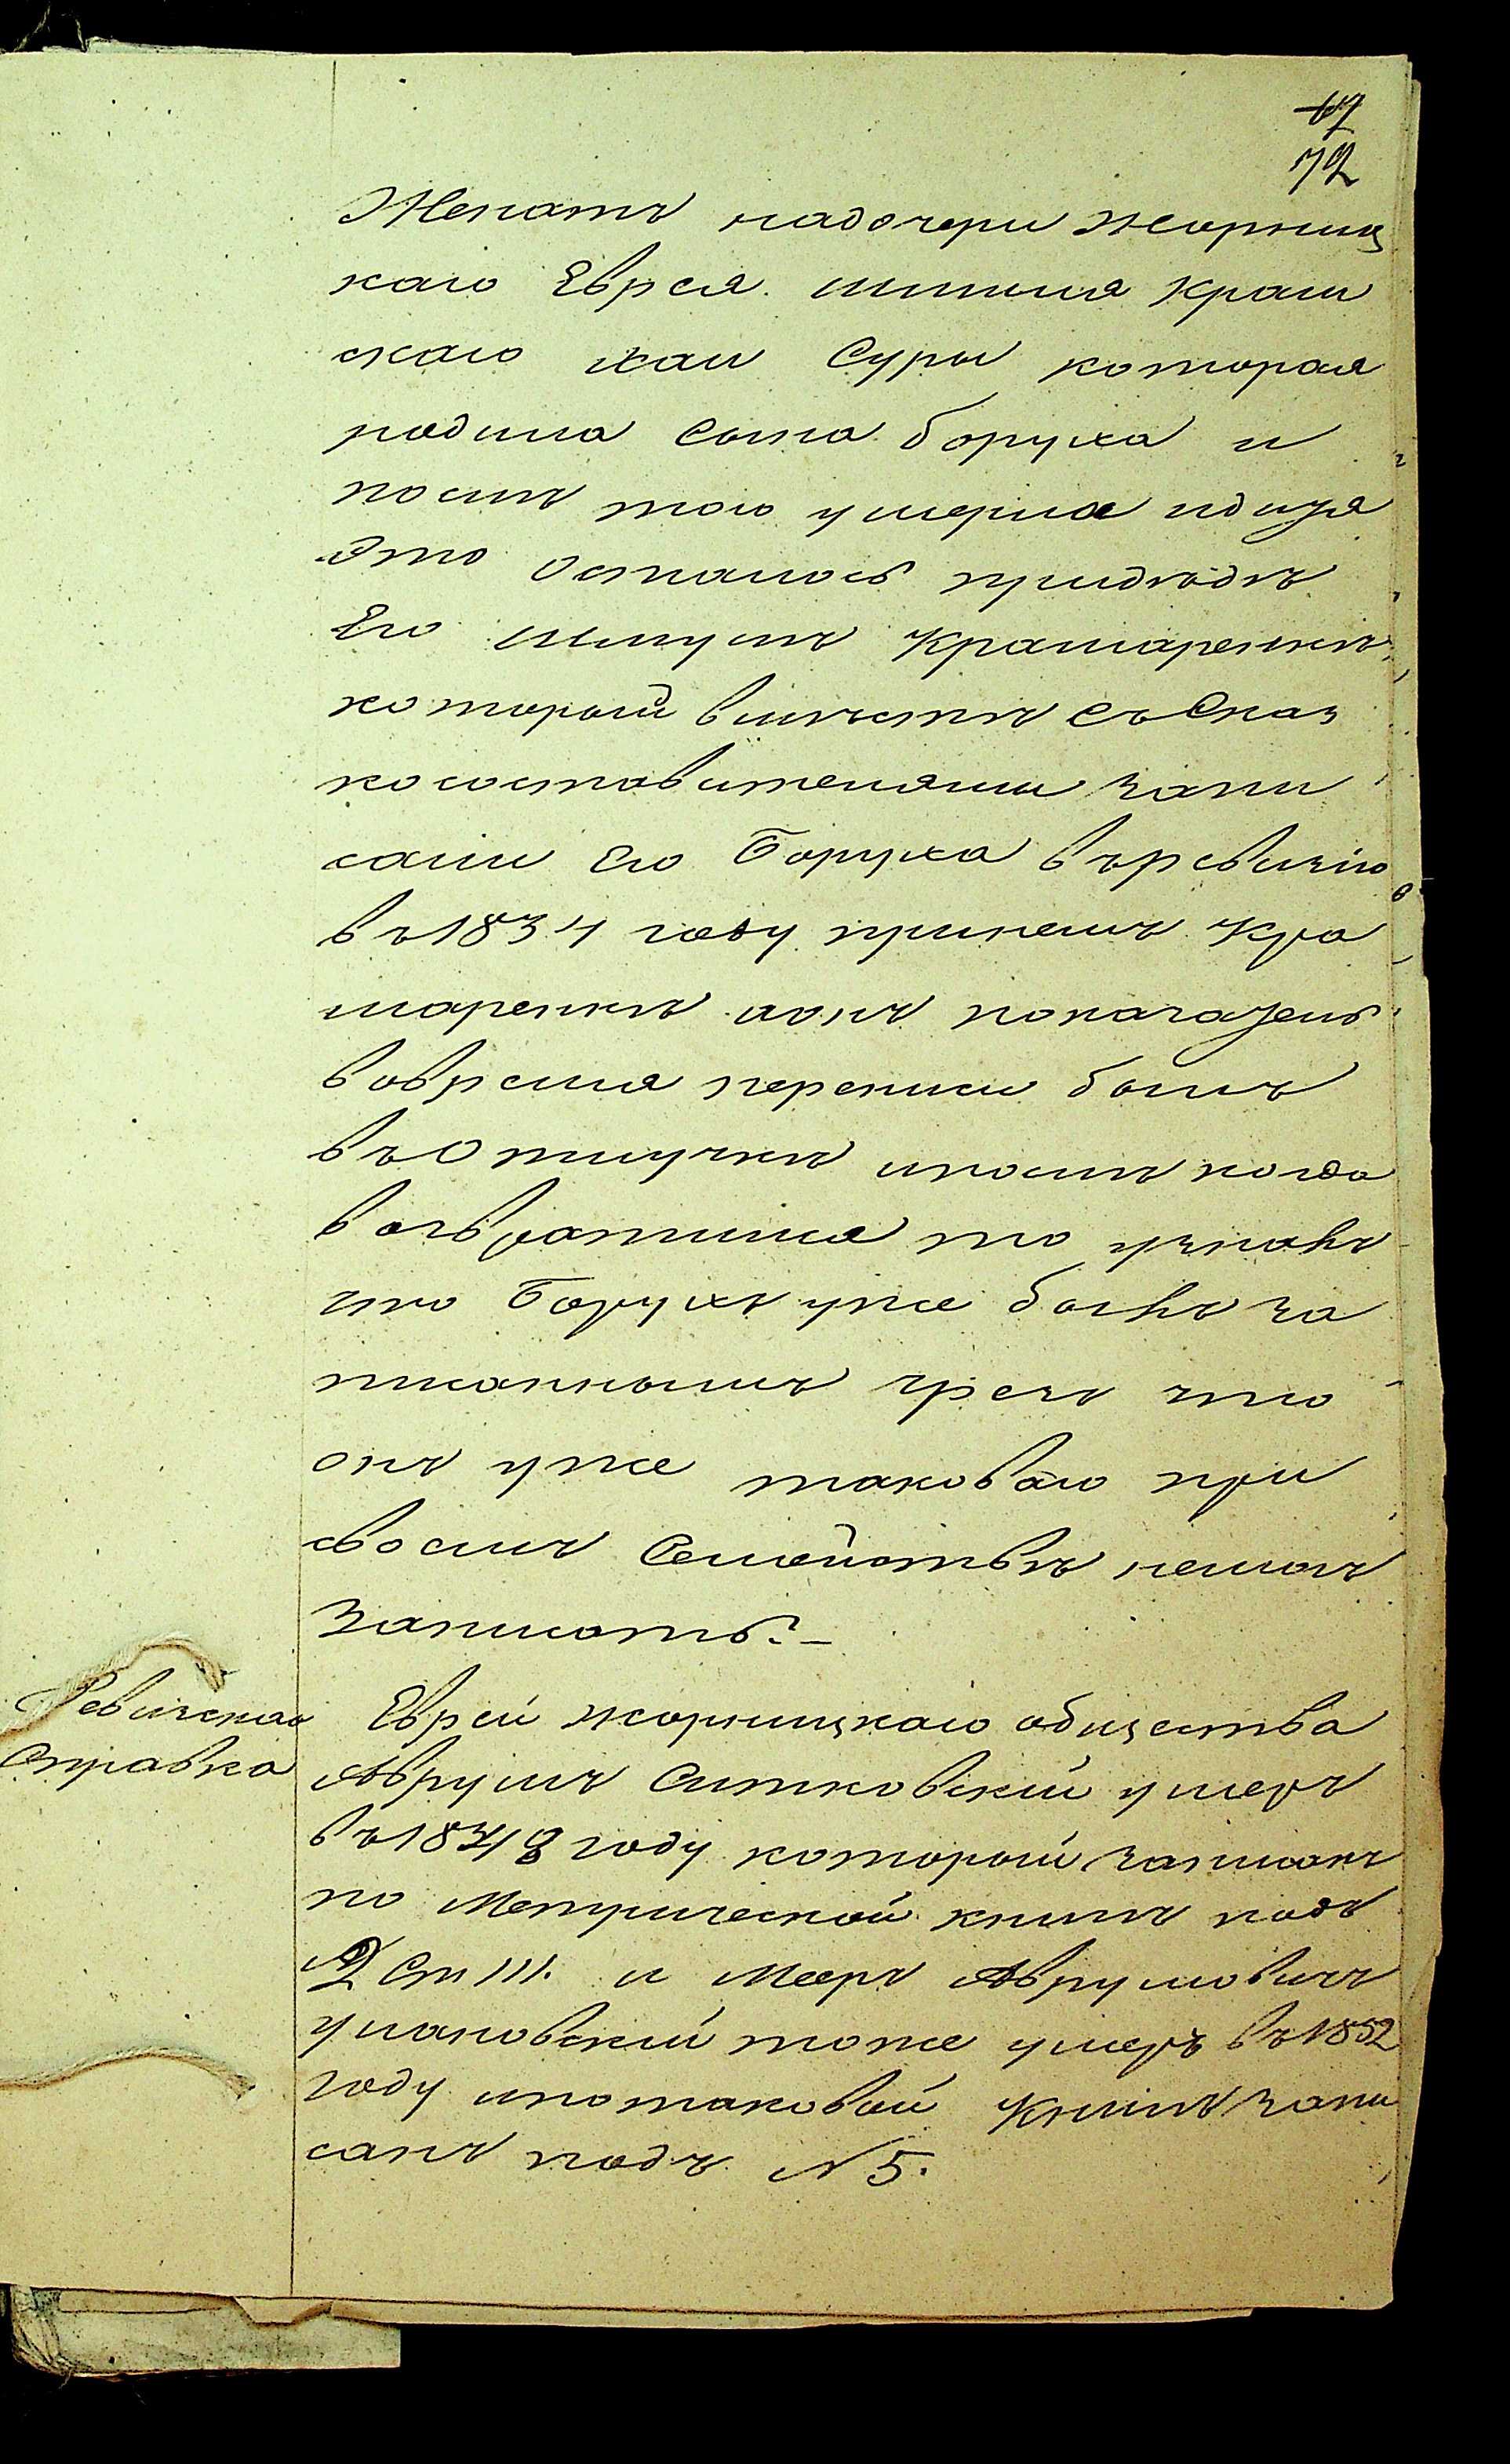 67
72
Женатъ надочери Жорнищ
каго Еврея шмуля Крам
скаго хаи Суры которая
родила Сына боруха и
послѣ того умерла идитя
Это осталось придѣдѣ
Его Шмулѣ Крамаренкѣ
который вмѣстѣ съ Сказ
косоставителями запи
сали Его Боруха въревизію
въ1834 году принемъ Кра
маренкѣ аонъ показатель
вовремя переписи былъ
въОтлучкѣ ипослѣ когда
возвратился то узналъ
что Борухъ уже былъ за
писаннымъ чрезъ что
онъ уже таковаго при
своемъ Семействѣ немогъ
Записать.–
Ревизская
Справка
Еврей жорнищкаго общества
Аврумъ Ситковскій умеръ
въ1848 году который записанъ
по Метрической книгѣ подъ
№2 Ст III. и Мееръ Аврумовичъ
улановскій тоже умеръ въ1852
году ипотаковой Книгѣ запи
санъ подъ N 5.